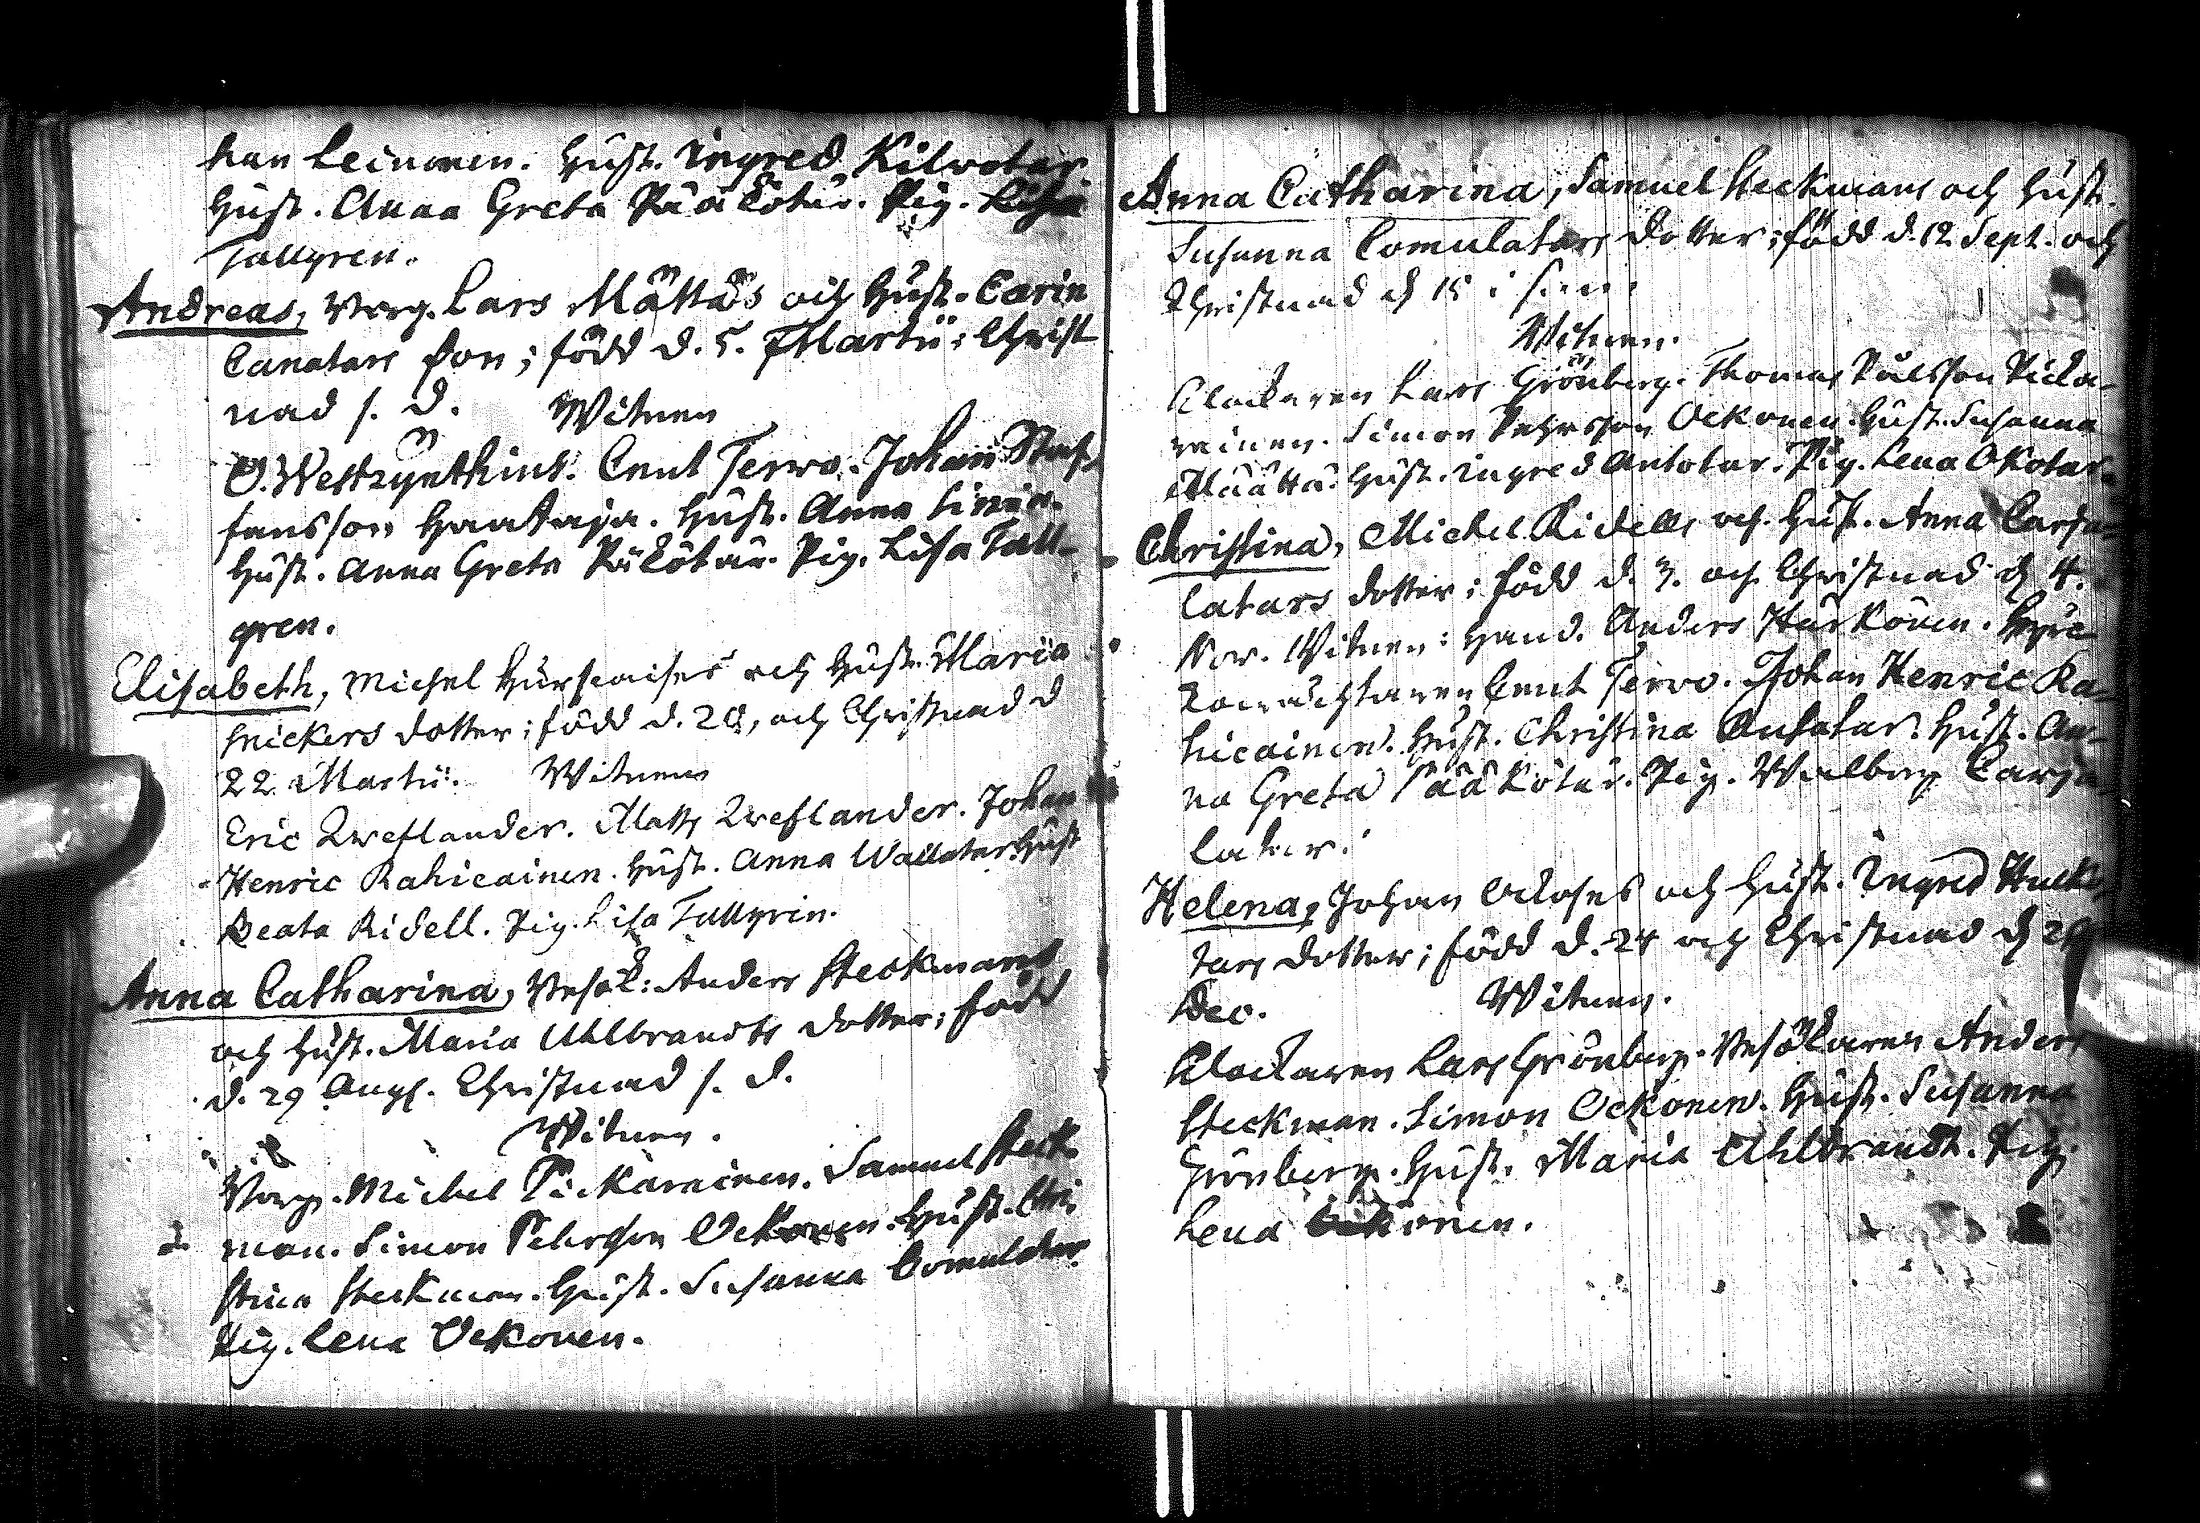 han Leinonen. Hust. Ingred Kilvotar.
Hust. Anna Greta Pääkötär. Pig. Lisa
Tallgren.
Andreas, Borg. Lars Mättäs och Hust. Carin
Canatars Son; född d. 5. Martii; Christ
nad s. d. Witnen
O. Westzynthius. Cnut Terwo. Johan Staf-
fansson Haataja. Hust. Anna
Hust. Anna Greta Päkötär. Pig. Lisa Tall-
gren.
Elisabeth, Michel och Hust. Maria
Snickers dotter; född d. 20, och Christnad d
22 Martii. Witnen
Eric Zweflander. Matts Zweflander. Johan
Henric Rahicainen. Hust. Anna Wallatar. Hust
Beata Ridell. Pig. Lisa Tallgrin.
Anna Catharina, Besök: Anders Steckmans
och Hust. Maria Uhlbrandts dotter; född
d. 29 Aug. Christnad s. d.
Witnen.
Borg. Michel Pickarainen. Samuel Steck
man. Simon Pehrsson Ockonen. Hust. Chri
stina Steckman. Hust. Susanna Comulatar.
Pig. Lena Ockonen.
Anna Catharina, Samuel Steckmans och Hust.
Susanna Comulatars dotter; född d. 12 Sept. och
Christnad d 15 i
Witnen.
Klockaren Lars Grönberg. Thomas Pålsson Picka-
rainen. Simon Pehrsson Ockonen. Hust. Susanna
Määttä. Hust. Ingred Antotar. Pig. Lena Okotar.
Christina, Michel Ridells och Hust. Anna Carja-
latars dotter; född d. 3. och Christnad d 4.
Nov. Witnen: Hand. Anders Hurkonen.
Cnut Terwo. Johan Henric Ra-
hicainen. Hust. Christina Hust. An-
na Greta Pääkötär. Pig. Walborg Carja
latar.
Helena, Johan och Hust. Ingred
tars dotter; född d. 24 och Christnad d
Dec. Witnen.
Klockaren Lars Grönberg. Besökaren Anders
Steckman. Simon Ockonen. Hust. Susanna
Grönberg. Hust. Maria Uhlbrandt. Pig.
Lena Ockonen.